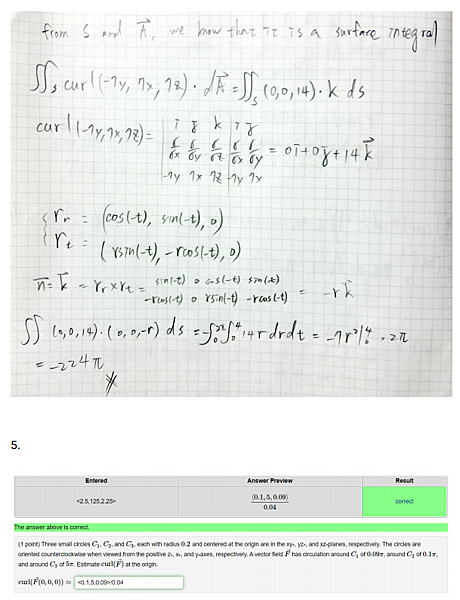 from S and A, we know that it is a surface integral
∬s curl(-7y, 7x, 7z) · dA = ∬s (0,0,14) · k ds
curl(-7y,7x,7z) =
i j k i j
δ/δx δ/δy δ/δz δ/δx δ/δy = 0i+0j+14k
-7y 7x 7z -7y 7x
rr = (cos(-t), sin(-t), 0)
rt = (rsin(-t), -rcos(-t), 0)
n = k = rr x rt = sin(-t) 0 cos(-t) sin(-t)
-rcos(-t) 0 rsin(-t) -rcos(-t) = -rk
∬ (0,0,14) · (0,0,-r) ds = -∫₀^2π ∫₀^4 14r dr dt = -7r²|₀^4 × 2π
= -224π
5.
Entered Answer Preview Result
<2.5,125,2.25> (0.1,5,0.09)/0.04 correct
The answer above is correct.
(1 point) Three small circles C1, C2, and C3, each with radius 0.2 and centered at the origin are in the xy-, yz-, and xz-planes, respectively. The circles are
oriented counterclockwise when viewed from the positive z-, x-, and y-axes, respectively. A vector field F has circulation around C1 of 0.09π, around C2 of 0.1π,
and around C3 of 5π. Estimate curl(F) at the origin.
curl(F(0,0,0)) ≈ <0.1,5,0.09>/0.04